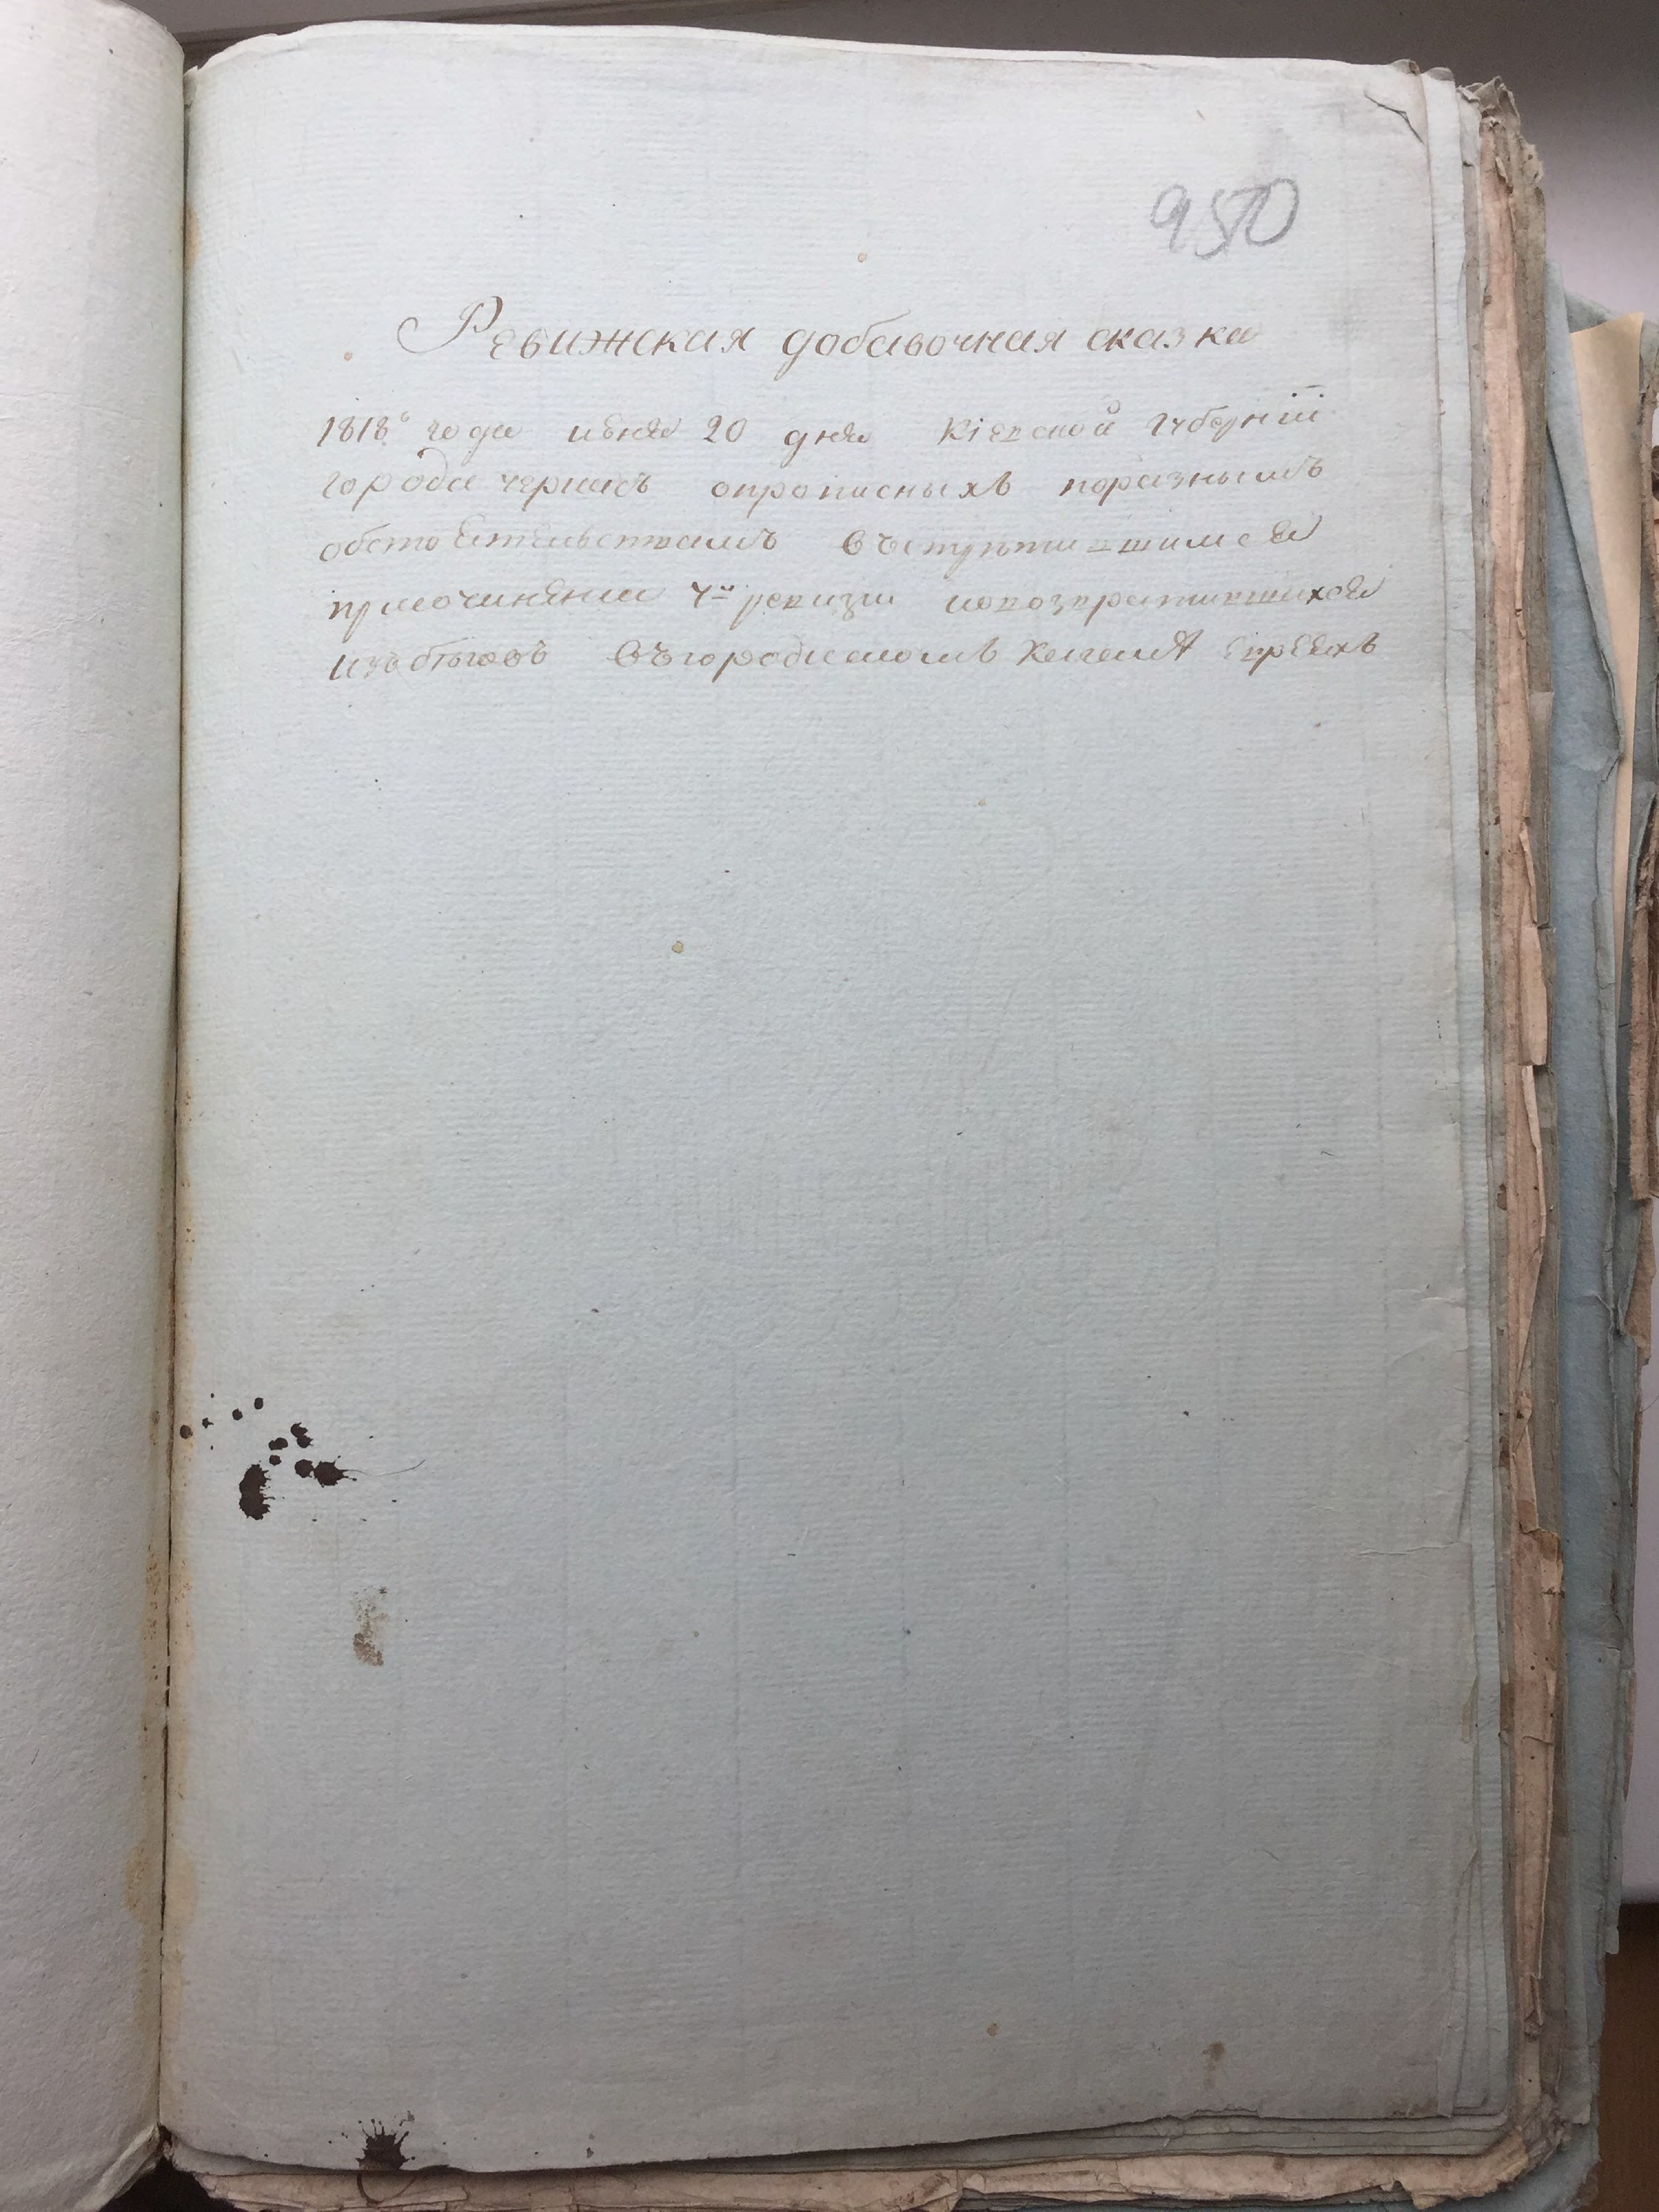 950
Ревижская добавочная сказка
1818го года июня 20 дня Кіевской Губерніи
города черкасъ опрописныхъ поразнымъ
обстоятельствамъ
присочинении 4й ревизи ивозвратившихся
избѣговъ въгородскомъ Кагалѣ Евреяхъ